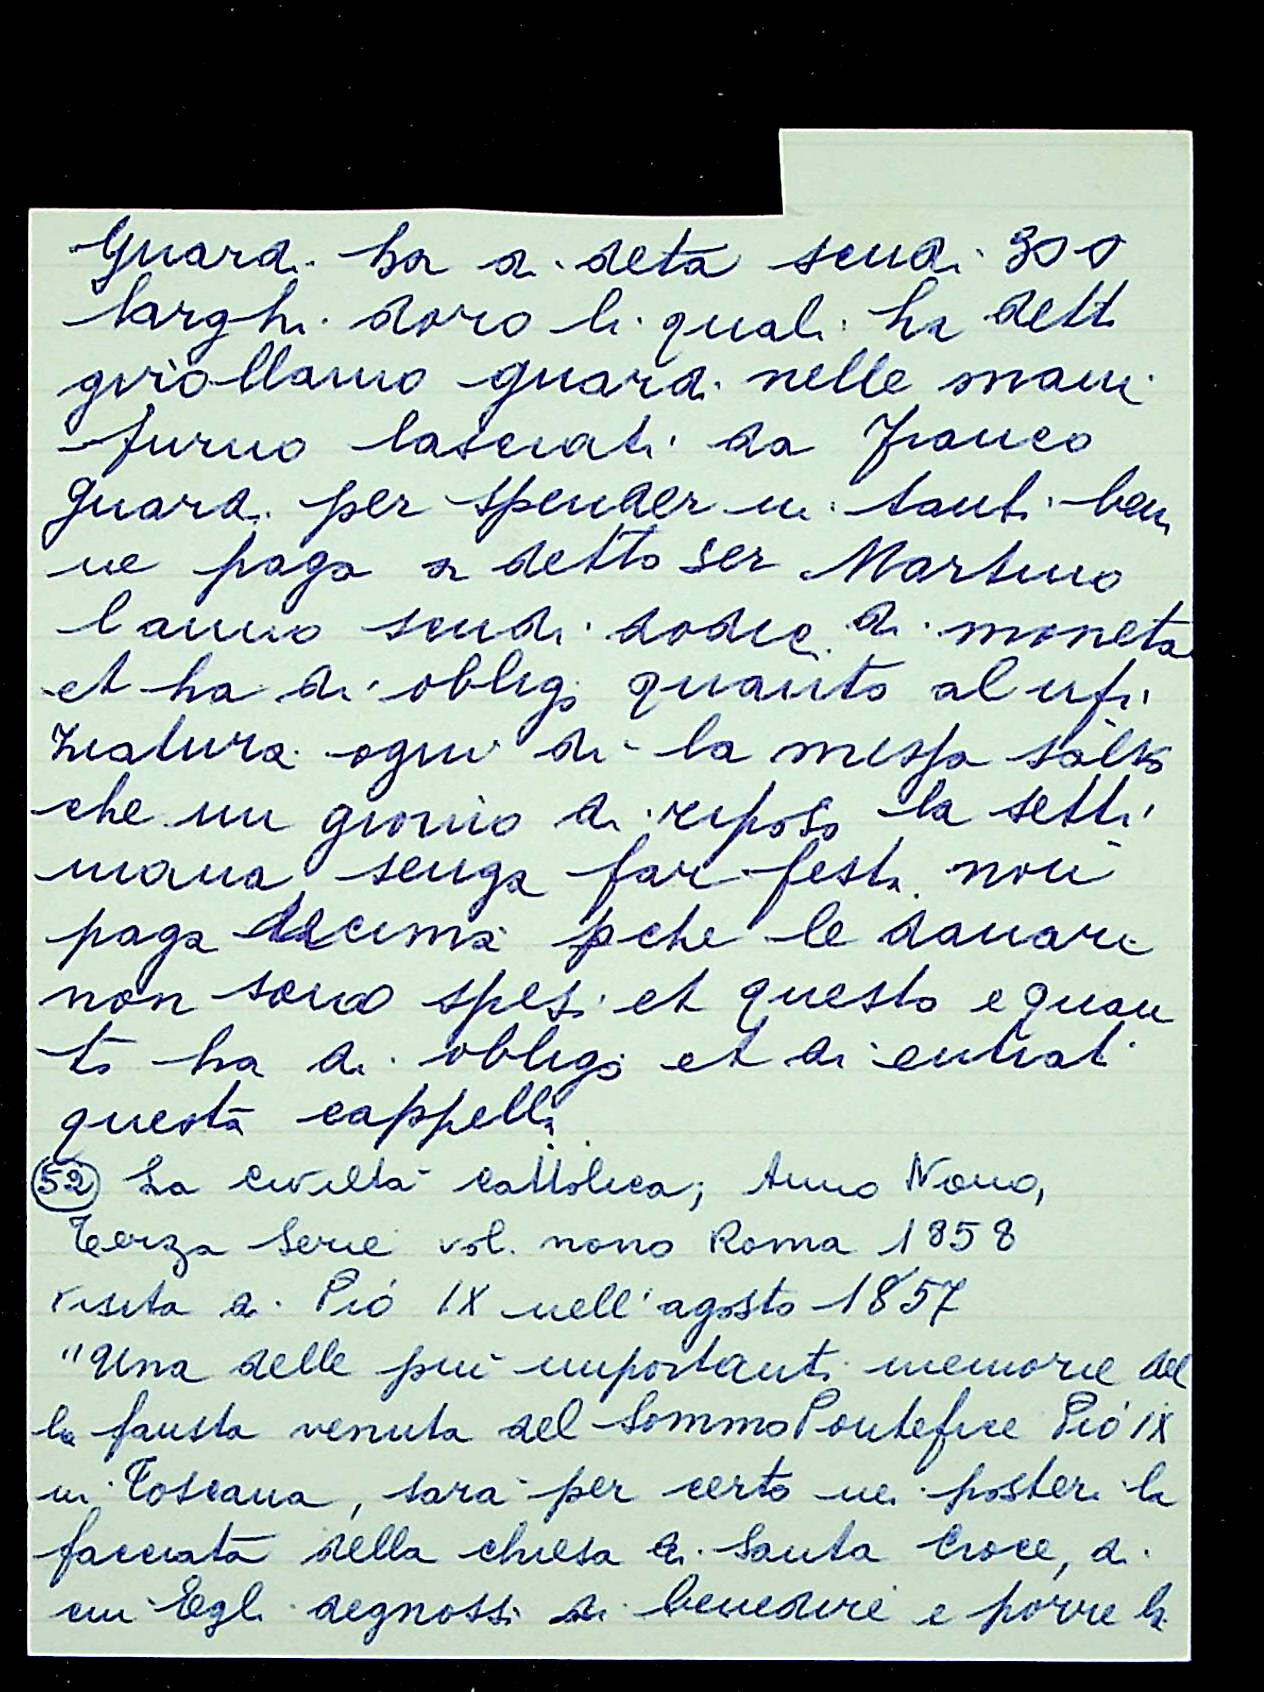 Guardi ha di deta scudi 300
larghi doro li quali ha detti
girollamo guardi nelle mani
furno lasciati da Franco
guardi per spender in tanti beni
ne paga a detto ser Martino
l anno scudi dodici di moneta
et ha di obligo quanto al ufi
ziatura ogni di la messa salvo
che un giorno di riposo la setti
mana senza far festa non
paga decima pche le danari
non sono spesi et questo e quan
to ha di obligo et di entrati
questa cappella
(52) La civiltà cattolica; Anno Nono,
Terza Serie vol. nono Roma 1858
visita di Pio IX nell'agosto 1857
"Una delle più importanti memorie del
la fausta venuta del Sommo Pontefice Pio IX
in Toscana, sarà per certo nei posteri la
facciata della chiesa di Santa Croce, di
cui Egli degnossi di benedire e porre la